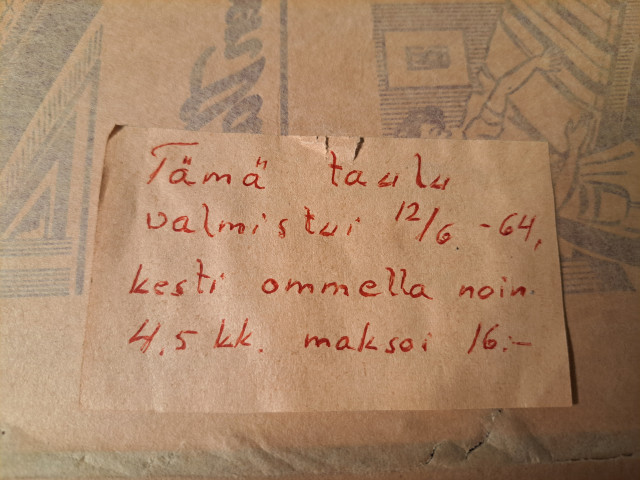 Tämä taulu
valmistui 12/6 -64,
kesti ommella noin
4,5 kk. maksoi 16:-